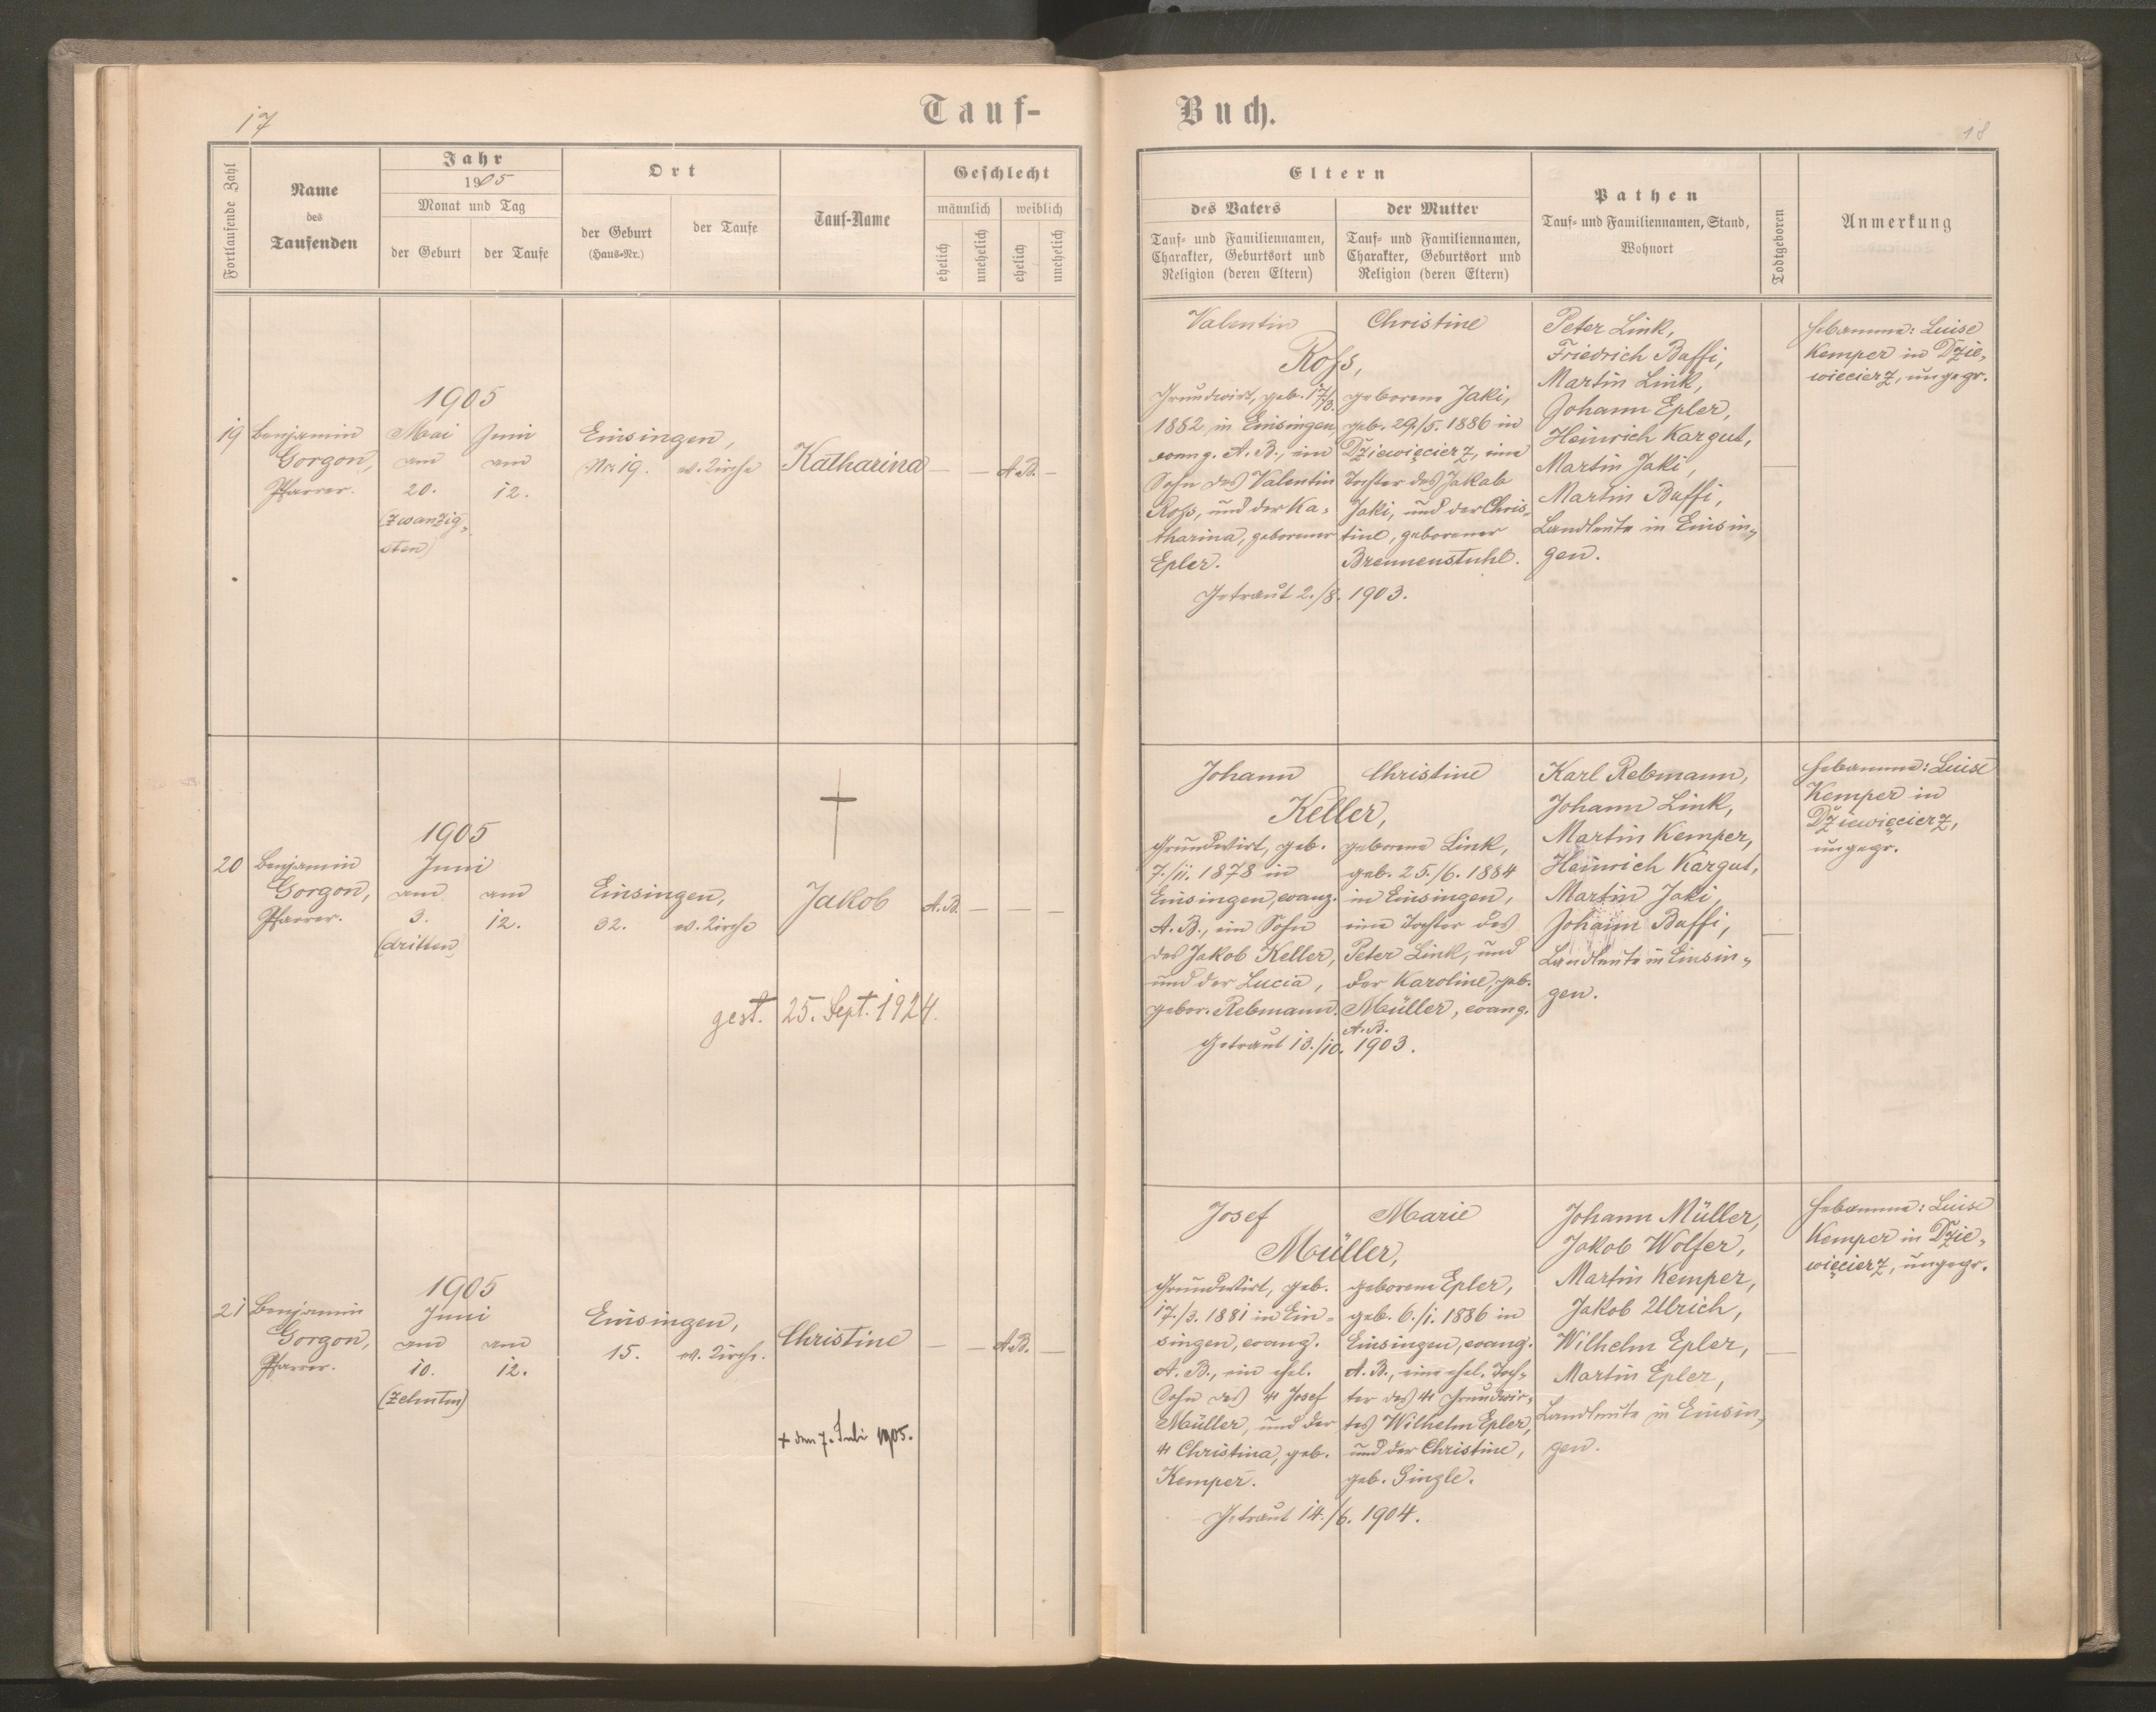 17
Tauf-
Fortlaufende Zahl
Name
des
Taufenden
Jahr
1905
Monat und Tag
der Geburt
der Taufe
Ort
der Geburt
(Haus-Nr.)
der Taufe
Tauf-Name
Geschlecht
männlich
weiblich
ehelich
unehelich
ehelich
unehelich
19
Benjamin
Gorgon,
Pfarrer.
1905
Mai
am
20.
(zwanzig-
sten)
Juni
am
12.
Einsingen,
Nr. 19.
ev. Kirche
Katharina
— — A.B. —
20
Benjamin
Gorgon,
Pfarrer.
1905
Juni
am
3.
(dritten)
am
12.
Einsingen,
32.
ev. Kirche
†
Jakob
A.B. — — —
gest. 25. Sept. 1924.
21
Benjamin
Gorgon,
Pfarrer.
1905
Juni
am
10.
(zehnten)
am
12.
Einsingen,
15.
ev. Kirche.
Christine
— — A.B. —
+ den 7. Juli 1905.
Buch.
18
Eltern
des Vaters
Tauf- und Familiennamen,
Charakter, Geburtsort und
Religion (deren Eltern)
der Mutter
Tauf- und Familiennamen,
Charakter, Geburtsort und
Religion (deren Eltern)
Pathen
Tauf- und Familiennamen, Stand,
Wohnort
Todtgeboren
Anmerkung
Valentin Christine
Roß,
Grundwirt, geb. 17/3.
1882 in Einsingen,
evang. A. B., ein
Sohn des Valentin
Roß, und der Ka-
tharina, geborener
Epler.
geborene Jaki,
geb. 29./5. 1886 in
Dziewięcierz, eine
Tochter des Jakob
Jaki, und der Chris-
tine, geborener
Brennenstuhl.
Getraut 2./8. 1903.
Peter Link,
Friedrich Baffi,
Martin Link,
Johann Epler,
Heinrich Kargut,
Martin Jaki,
Martin Baffi,
Landleute in Einsin-
gen.
—
Hebamme: Luise
Kemper in Dzie-
więcierz, ungepr.
Johann Christine
Keller,
Grundwirt, geb.
7./11. 1878 in
Einsingen, evang.
A. B., ein Sohn
des Jakob Keller,
und der Lucia,
gebor. Rebmann.
geborene Link,
geb. 25./6. 1884
in Einsingen,
eine Tochter des
Peter Link, und
der Karoline, geb.
Müller, evang.
A. B.
Getraut 13./10. 1903.
Karl Rebmann,
Johann Link,
Martin Kemper,
Heinrich Kargut,
Martin Jaki,
Johann Baffi,
Landleute in Einsin-
gen.
—
Hebamme: Luise
Kemper in
Dziewięcierz,
ungepr.
Josef Marie
Müller,
Grundwirt, geb.
17./3. 1881 in Ein-
singen, evang.
A. B., ein ehel.
Sohn des Josef
Müller, und der
Christina, geb.
Kemper.
geborene Epler,
geb. 6./1. 1886 in
Einsingen, evang.
A. B., eine ehel. Toch-
ter des Grundwir-
tes Wilhelm Epler,
und der Christine,
geb. Ginzle.
Getraut 14./6. 1904.
Johann Müller,
Jakob Wolfer,
Martin Kemper,
Jakob Ulrich,
Wilhelm Epler,
Martin Epler,
Landleute in Einsin-
gen.
—
Hebamme: Luise
Kemper in Dzie-
więcierz, ungepr.